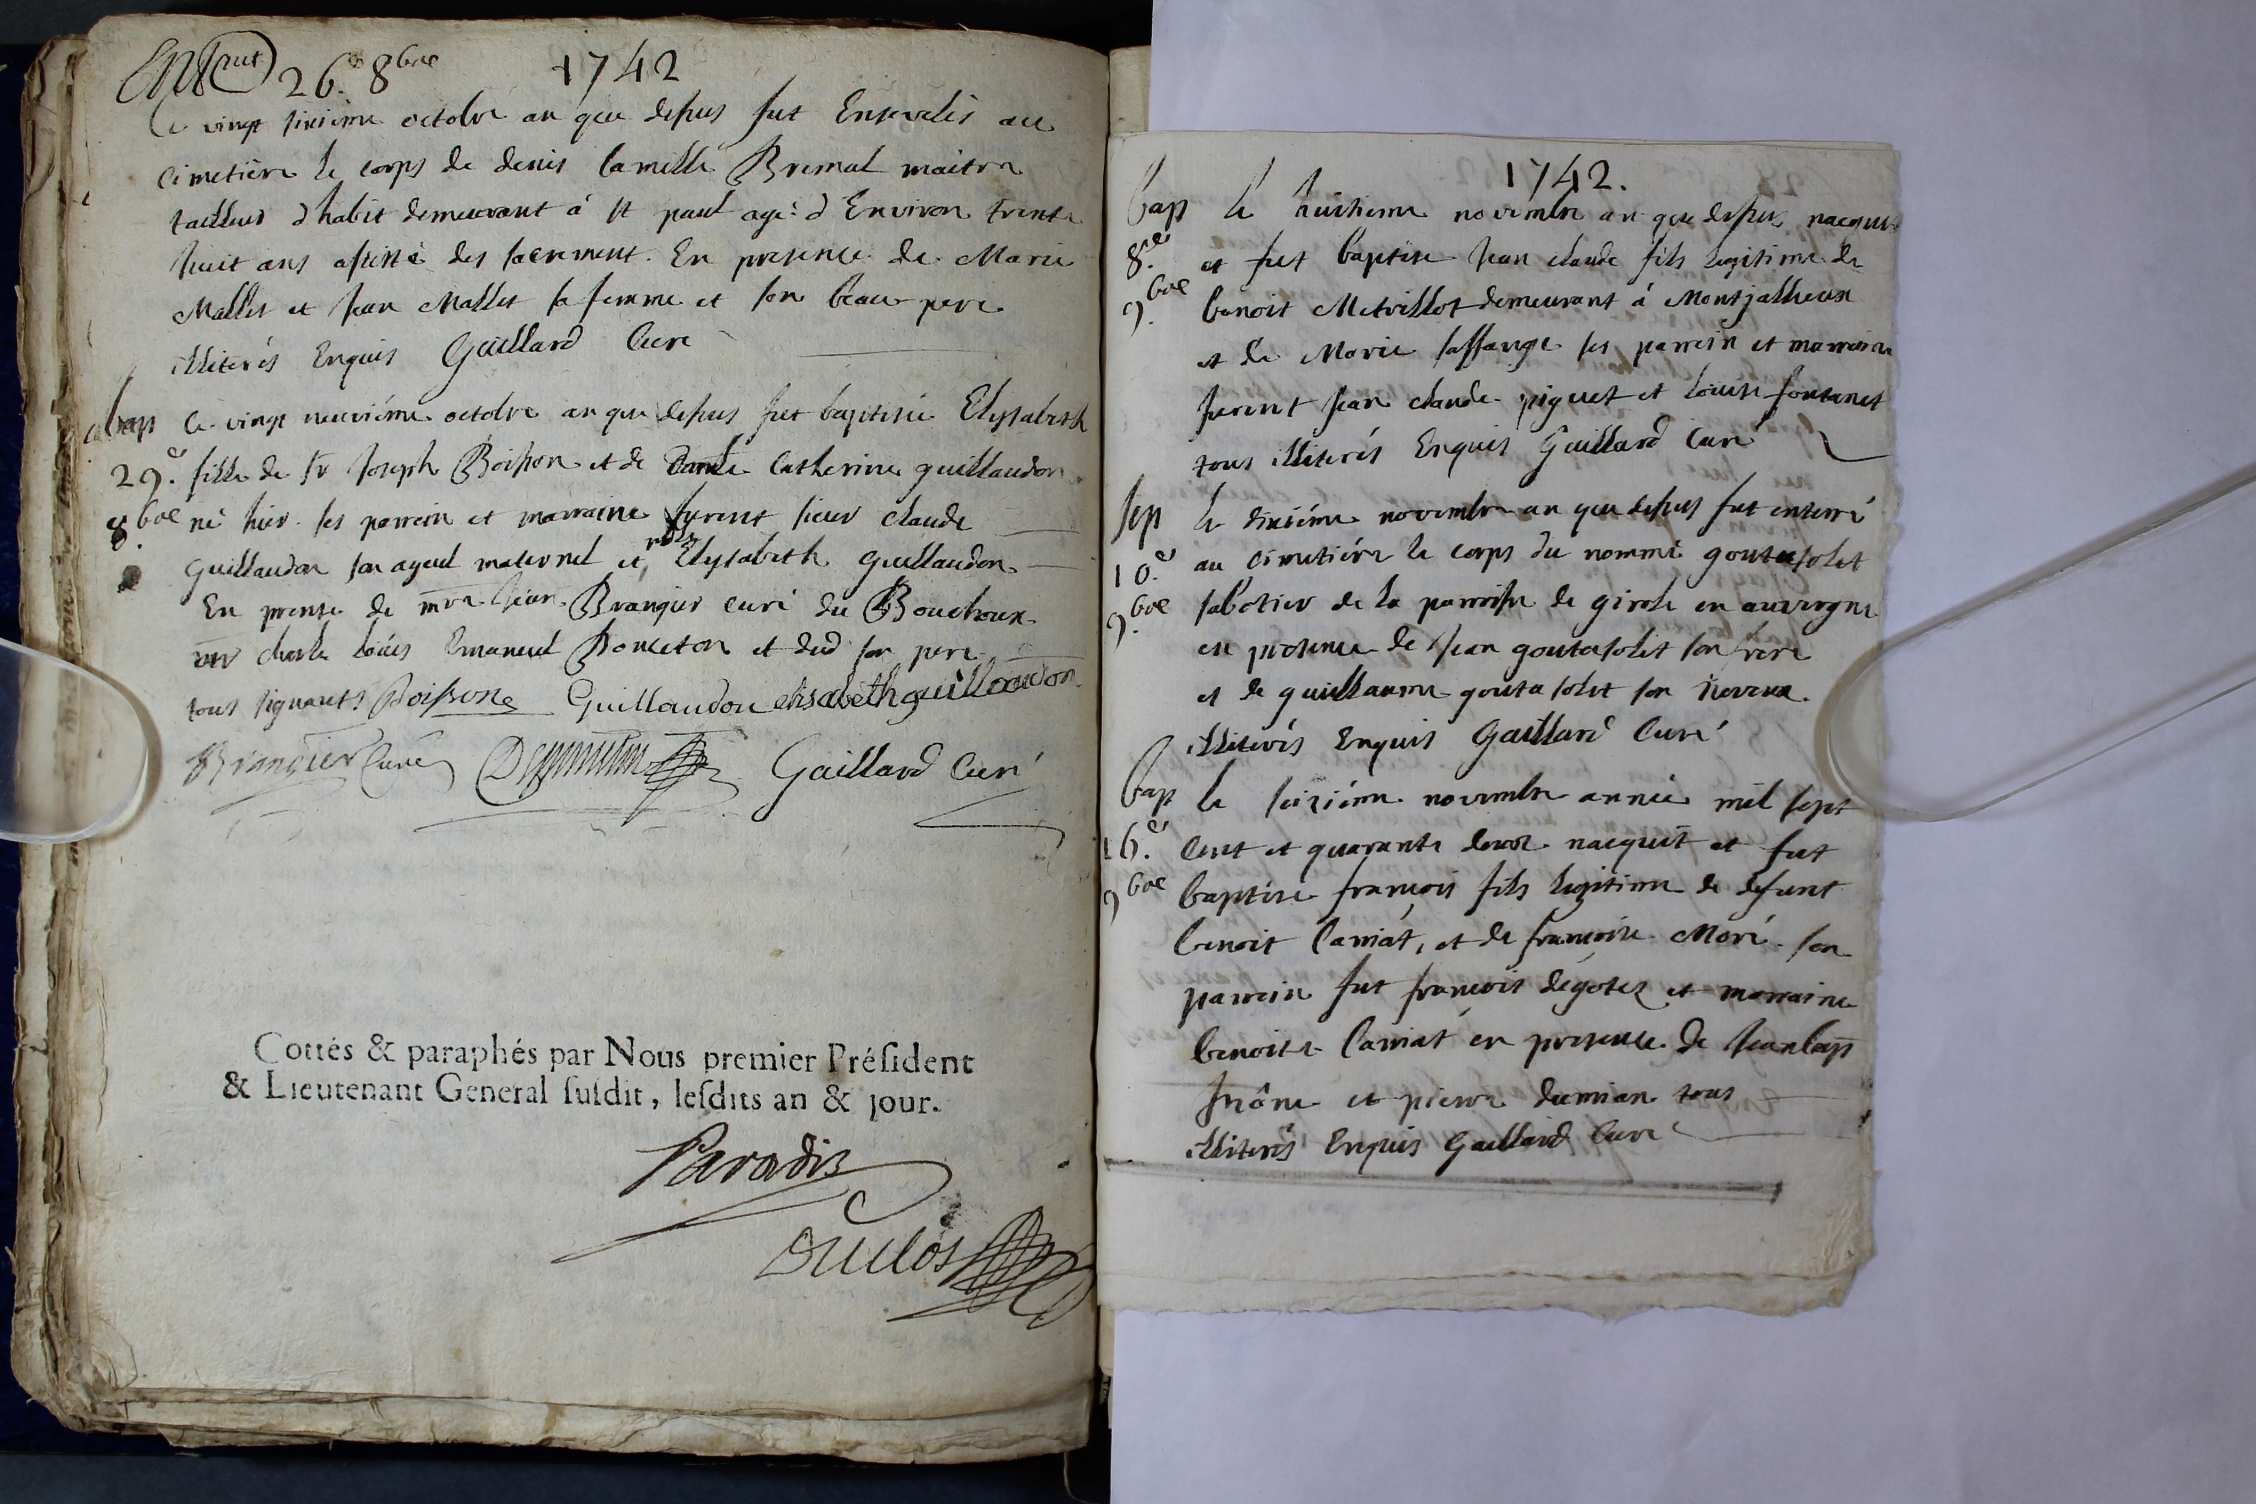 Enterrement 26.e 8bre 1742
Le vingt sixième octobre an que dessus fut Ensevelis au
Cimetière le corps de denis Camille Bremal maitre
tailleur dhabit demeurant á st paul agé d Environ trente
huit ans assisté des sacrement En presence de Marie
Mallet et Jean Mallet sa femme et son beau pere
illiterés Enquis Gaillard Curé
bap Le vingt neuviéme octobre an que dessus fut baptisée Elysabeth
29.e fille de sr Joseph Boisson et de Catherine guillaudon
8.bre né hier ses parrein et marraine furent sieur claude
Guillaudon son ayeul maternel et Elysabeth guillaudon
En presence de mre Jean Brangier curé du Bouchoux
charle loüis Emanuel et dud son pere
tous signants Boisson Guillaudon elisabeth guillaudon
Brangier Curé Gaillard Curé
Cottés & paraphés par Nous premier Préſident
& Lieutenant General ſuſdit, leſdits an & jour.
Paradis
Duclos
1742.
bap le huitieme novembre an que dessus nacquit
8.e et fut baptise Jean claude fils legitime de
9.bre benoit Metrillot demeurant á Montjallieux
et de Marie saffange ses parrein et marreine
furent Jean claude piguet et Louise fontanet
tous illiterés Enquis Gaillard Curé
sep le dixiéme novembre an que dessus fut enterré
10.e au cimetiére le corps du nommé goutesolet
9.bre sabotier de la parroisse de girole en auvergne
en presence de Jean goutesolet son frere
et de guillaume goutesolet son neveux.
illiterés Enquis Gaillard Curé
bap le seiziéme novembre année mil sept
16.e Cent et quarante deux nacquit et fut
9bre baptisé françois fils legitime de defunt
benoit Camát, et de françoise Moré son
parrein fut françois dégotez et marraine
benoite Camát en presence de Jeanbap
frône et pierre dumian tous
illiterés Enquis Gaillard Curé